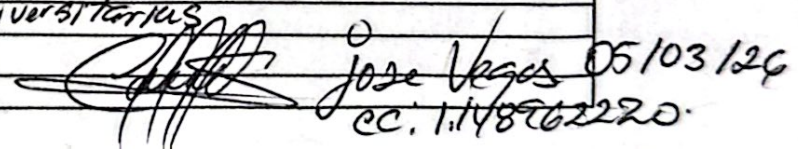 versitarius
Jose Vegas 05/03/26
cc. 1.148962220.